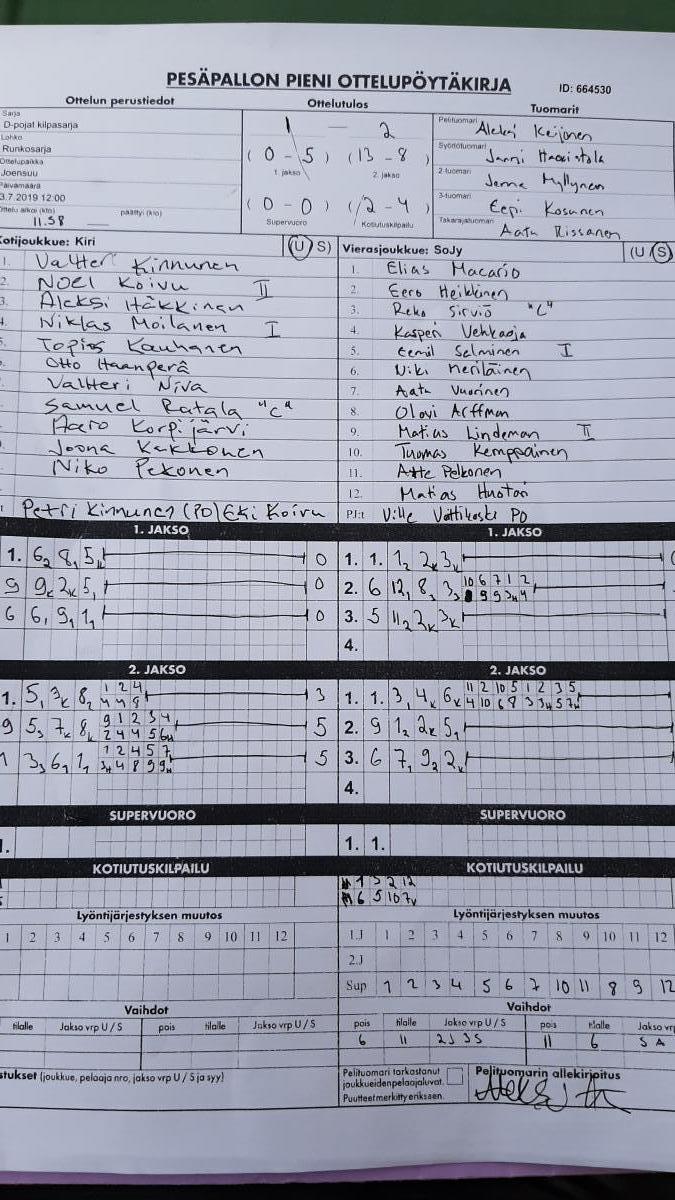 PESÄPALLON PIENI OTTELUPÖYTÄKIRJA ID: 664530
Ottelun perustiedot Ottelutulos Tuomarit
Sarja
D-pojat kilpasarja
Lohko
Runkosarja
Ottelupaikka
Joensuu
Päivämäärä
3.7.2019 12:00
Ottelu alkoi (klo) päättyi (klo)
11.58
1 — 2
(0 - 5) (13 - 8)
1. jakso 2. jakso
(0 - 0) (2 - 4)
Supervuoro Kotiutuskilpailu
Pelituomari Aleksi Keijonen
Syöttötuomari Janni
2-tuomari Jenna Myllynen
3-tuomari Eepi Kosunen
Takarajatuomari Aatu Rissanen
Kotijoukkue: Kiri (U S)
1. Valtteri Kinnunen
2. Noel Koivu II
3. Aleksi Häkkinen
4. Niklas Moilanen I
5. Topias Kauhanen
Otto Haanperä
Valtteri Niva
Samuel Ratala "C"
Aaro Korpijärvi
Joona Kekkonen
Niko Pekonen
Petri Kinnunen (PJ) Eki Koivu
Vierasjoukkue: SoJy (U S)
1. Elias Macario
2. Eero Heikkinen
3. Reko Sirviö "C"
4. Kasperi Vehkaoja
5. Eemil Salminen I
6. Niki Meriläinen
7. Aatu Vuorinen
8. Olavi Arffman
9. Matias Lindeman II
10. Tuomas Kemppainen
11. Atte Pelkonen
12. Matias Huotari
PJ:t Ville PO
1. JAKSO 1. JAKSO
1. 6₂ 8₁ 5ₖ 0 1. 1. 1₂ 2ₖ 3ₖ
9 9ₖ 2ₖ 5₁ 0 2. 6 12₁ 8₃ 3₃ 10 6 7 1 2
9 9 3ₕ 4
6 6₁ 9₁ 1₁ 0 3. 5 11₂ 2ₖ 3ₖ
4.
2. JAKSO 2. JAKSO
1. 5₁ 3ₖ 8₂ 1 2 4 3 1. 1. 3₁ 4ₖ 6ₖ 11 2 10 5 1 2 3 5
4 4 8 4 10 6 8 3 3ₕ 5 7ₕ
9 5₃ 7ₖ 8ₖ 9 1 2 3 4 5 2. 9 1₂ 2ₖ 5₁
2 4 4 5 6ₕ
1 3₃ 6₁ 1₁ 1 2 4 5 7 5 3. 6 7₁ 9₂ 2ₖ
3ₕ 4 8 9 9ₕ
4.
SUPERVUORO SUPERVUORO
1. 1. 1.
KOTIUTUSKILPAILU KOTIUTUSKILPAILU
1 3 2 12
6 5 10 7ᵥ
Lyöntijärjestyksen muutos Lyöntijärjestyksen muutos
1 2 3 4 5 6 7 8 9 10 11 12
1.J 1 2 3 4 5 6 7 8 9 10 11 12
2.J
Sup 1 2 3 4 5 6 7 10 11 8 9 12
Vaihdot Vaihdot
tilalle Jakso vrp U / S pois tilalle Jakso vrp U / S
pois tilalle Jakso vrp U / S pois tilalle Jakso vrp
6 11 2J 3S 11 6 S A
(joukkue, pelaaja nro, jakso vrp U / S ja syy)
Pelituomari tarkastanut
joukkueiden pelaajaluvat.
Puutteet merkitty erikseen.
Pelituomarin allekirjoitus